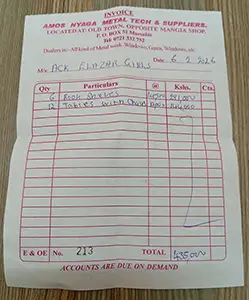 INVOICE
AMOS NYAGA METAL TECH & SUPPLIERS.
LOCATED AT: OLD TOWN, OPPOSITE MANGIA SHOP.
P. O. BOX 51 Marsabit
Tel: 0721 332 702
Dealers in:- All kind of Metal work. Windows, Gates, Windows, etc.
Date 6 2 2026
M/s ACK ELAZAR GIRLS
Qty Particulars @ Kshs. Cts.
6 Book Shelves
12 Tables with Chairs
E & OE No. 213 TOTAL
ACCOUNTS ARE DUE ON DEMAND